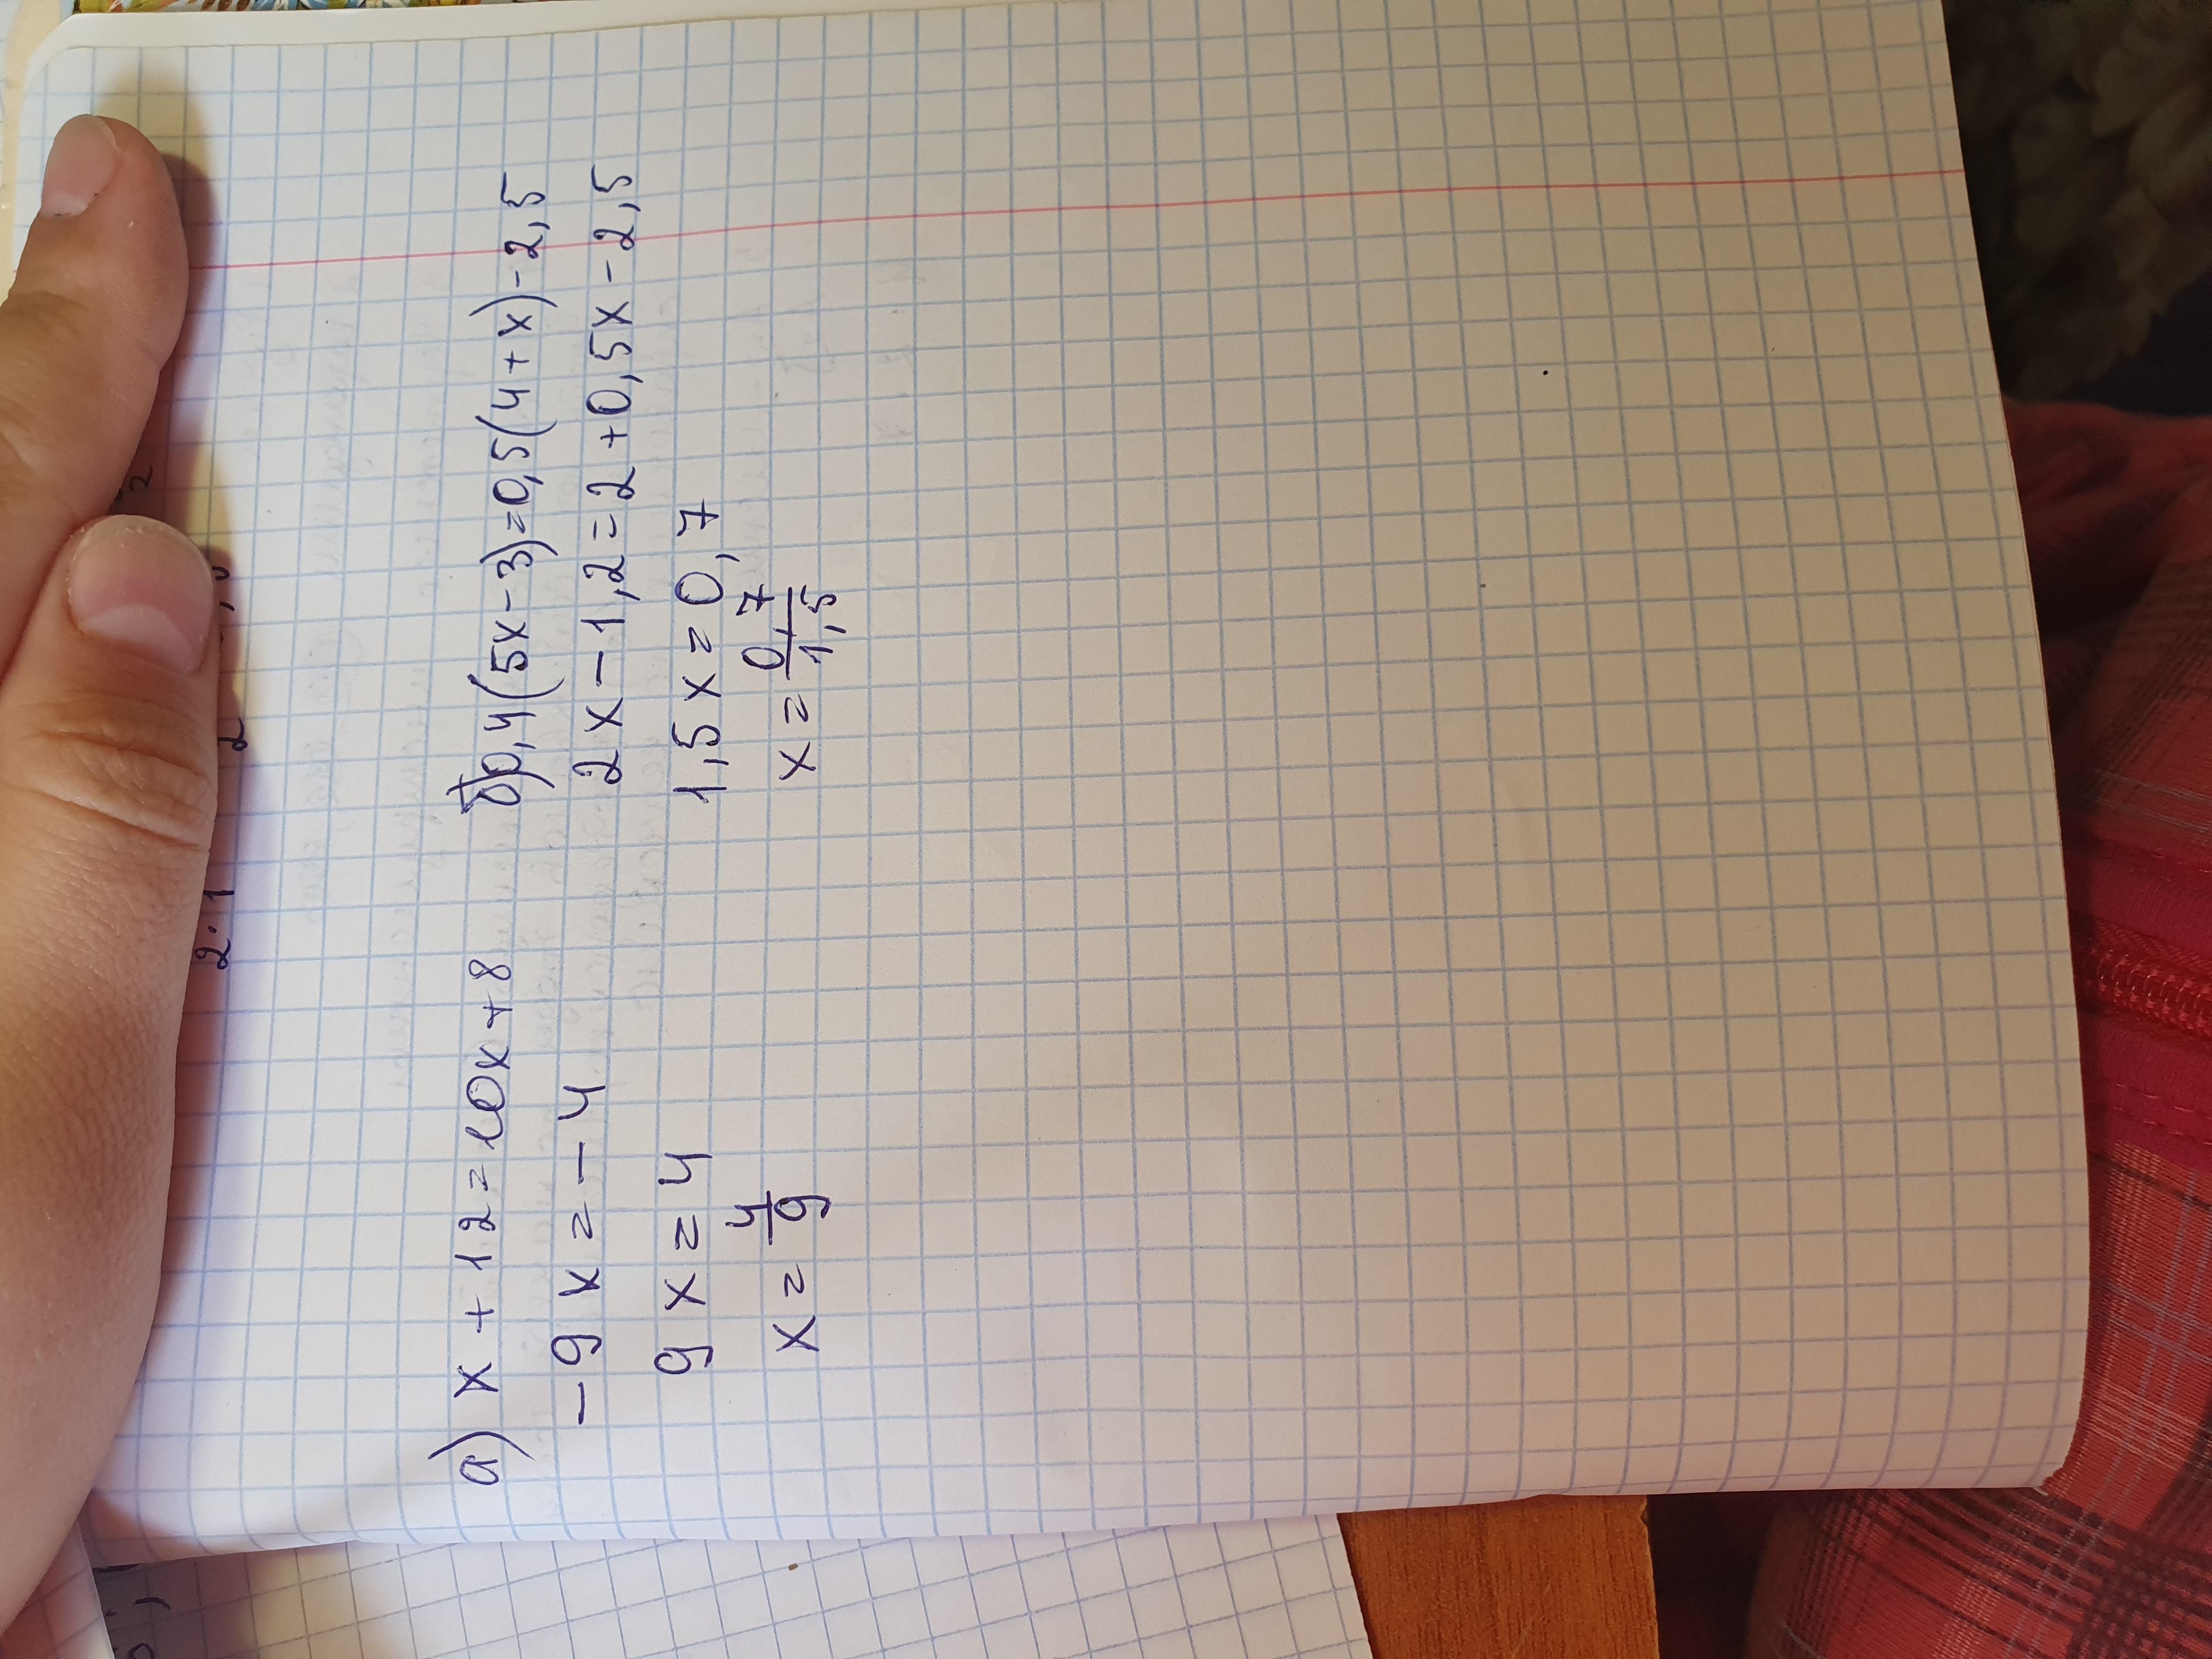 а) x + 12 = 10x + 8
-9x = -4
9x = 4
x = 4/9
б) 0,4(5x-3)=0,5(4+x)-2,5
2x-1,2=2+0,5x-2,5
1,5x=0,7
x = 0,7/1,5